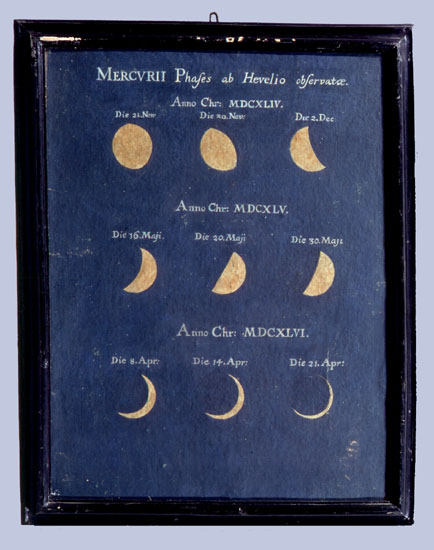 MERCVRII Phases ab Hevelio observatæ.
Anno Chr: MDCXLIV.
Die 21. Nov Die 29. Nov Die 2. Dec
Anno Chr: MDCXLV.
Die 16. Maji. Die 20. Maji Die 30. Maji
Anno Chr: MDCXLVI.
Die 8. Apr: Die 14. Apr: Die 21. Apr: